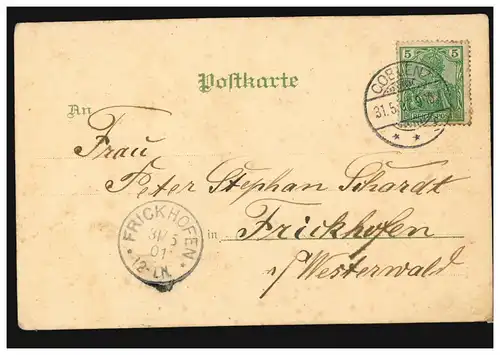 5 5
Postkarte
COBLENZ
31.5.
An
Frau
Peter Stephan Schardt
in Frickhofen
s/Westerwald
FRICKHOFEN
31/5
01
* 12-1N. *